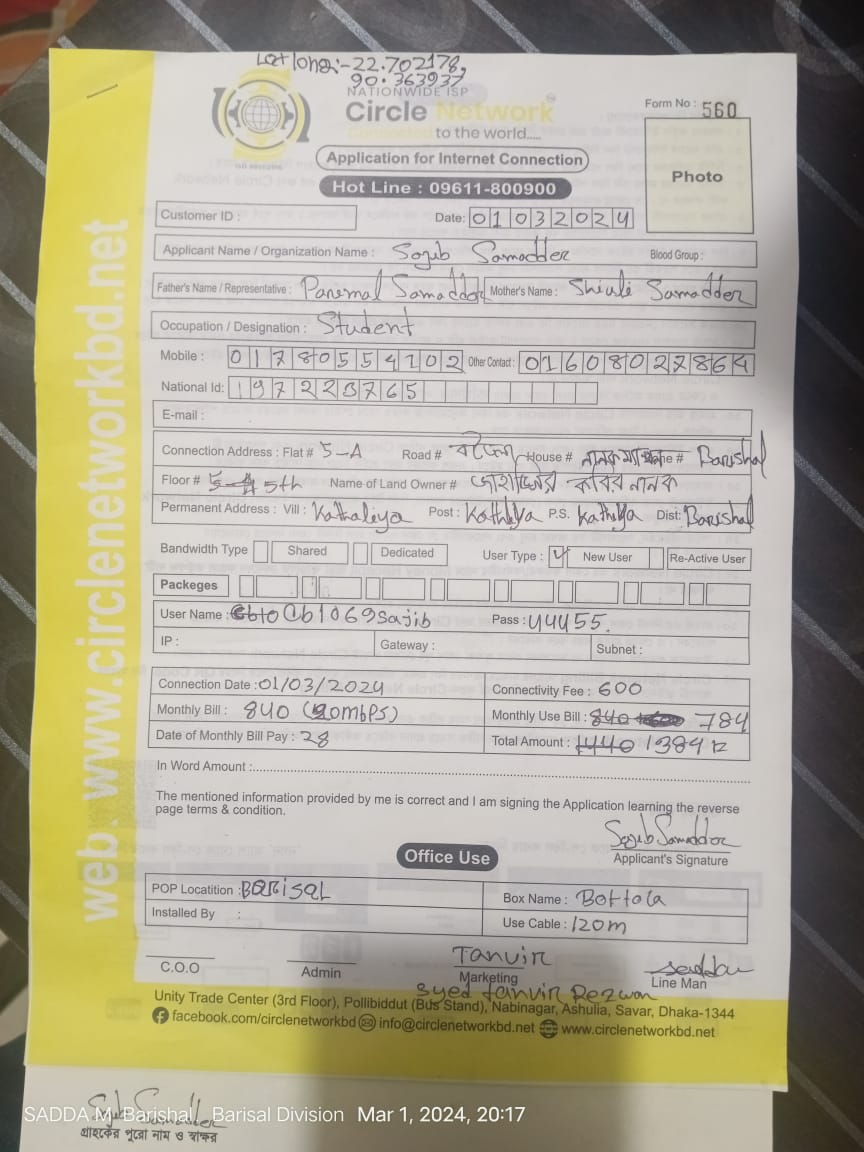 Lat long:-22.702178,
90.363937
NATIONWIDE ISP
Circle Network
Connected to the world.....
Form No : 560
Application for Internet Connection
Photo
Hot Line : 09611-800900
Customer ID :
Date: 01032024
Applicant Name / Organization Name : Sojib Samadder Blood Group :
Father's Name / Representative : Paremal Samaddor Mother's Name : Shiuli Samadder
Occupation / Designation : Student
Mobile : 01780554102 Other Contact : 01608027864
National Id: 1972223765
E-mail :
Connection Address : Flat # 5-A Road # House # # Barishal
Floor # 5th Name of Land Owner # কবির নানক
Permanent Address : Vill : Kathaliya Post : Kathliya P.S. Kathliya Dist: Barishal
Bandwidth Type Shared Dedicated User Type : New User Re-Active User
Packeges
User Name : @b1069sajib Pass : 44455.
IP : Gateway : Subnet :
Connection Date : 01/03/2024 Connectivity Fee : 600
Monthly Bill : 840 (20mbps) Monthly Use Bill : 840 784
Date of Monthly Bill Pay : 28 Total Amount : 1440 1384
In Word Amount :
The mentioned information provided by me is correct and I am signing the Application learning the reverse
page terms & condition.
Sojib Samaddor
Applicant's Signature
Office Use
POP Locatition : Barisal Box Name : Bottola
Installed By : Use Cable : 120m
C.O.O Admin Tanvir Marketing Line Man
Syed Tanvir Rezwan
Unity Trade Center (3rd Floor), Pollibiddut (Bus Stand), Nabinagar, Ashulia, Savar, Dhaka-1344
facebook.com/circlenetworkbd info@circlenetworkbd.net www.circlenetworkbd.net
web: www.circlenetworkbd.net
SADDA M, Barishal, Barisal Division Mar 1, 2024, 20:17
গ্রাহকের পুরো নাম ও স্বাক্ষর